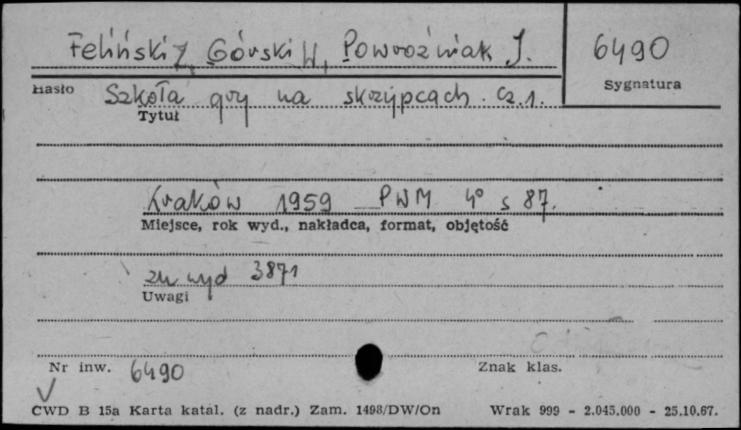 Feliński Z, Górski W, Powroźniak J.
6490
Hasło
Sygnatura
Szkoła gry na skrzypcach. Cz. 1.
Tytuł
Kraków 1959 PWM 4° s 87.
Miejsce, rok wyd., nakładca, format, objętość
zn wyd 3871
Uwagi
Nr inw. 6490
Znak klas.
CWD B 15a Karta katal. (z nadr.) Zam. 1498/DW/On
Wrak 999 - 2.045.000 - 25.10.67.